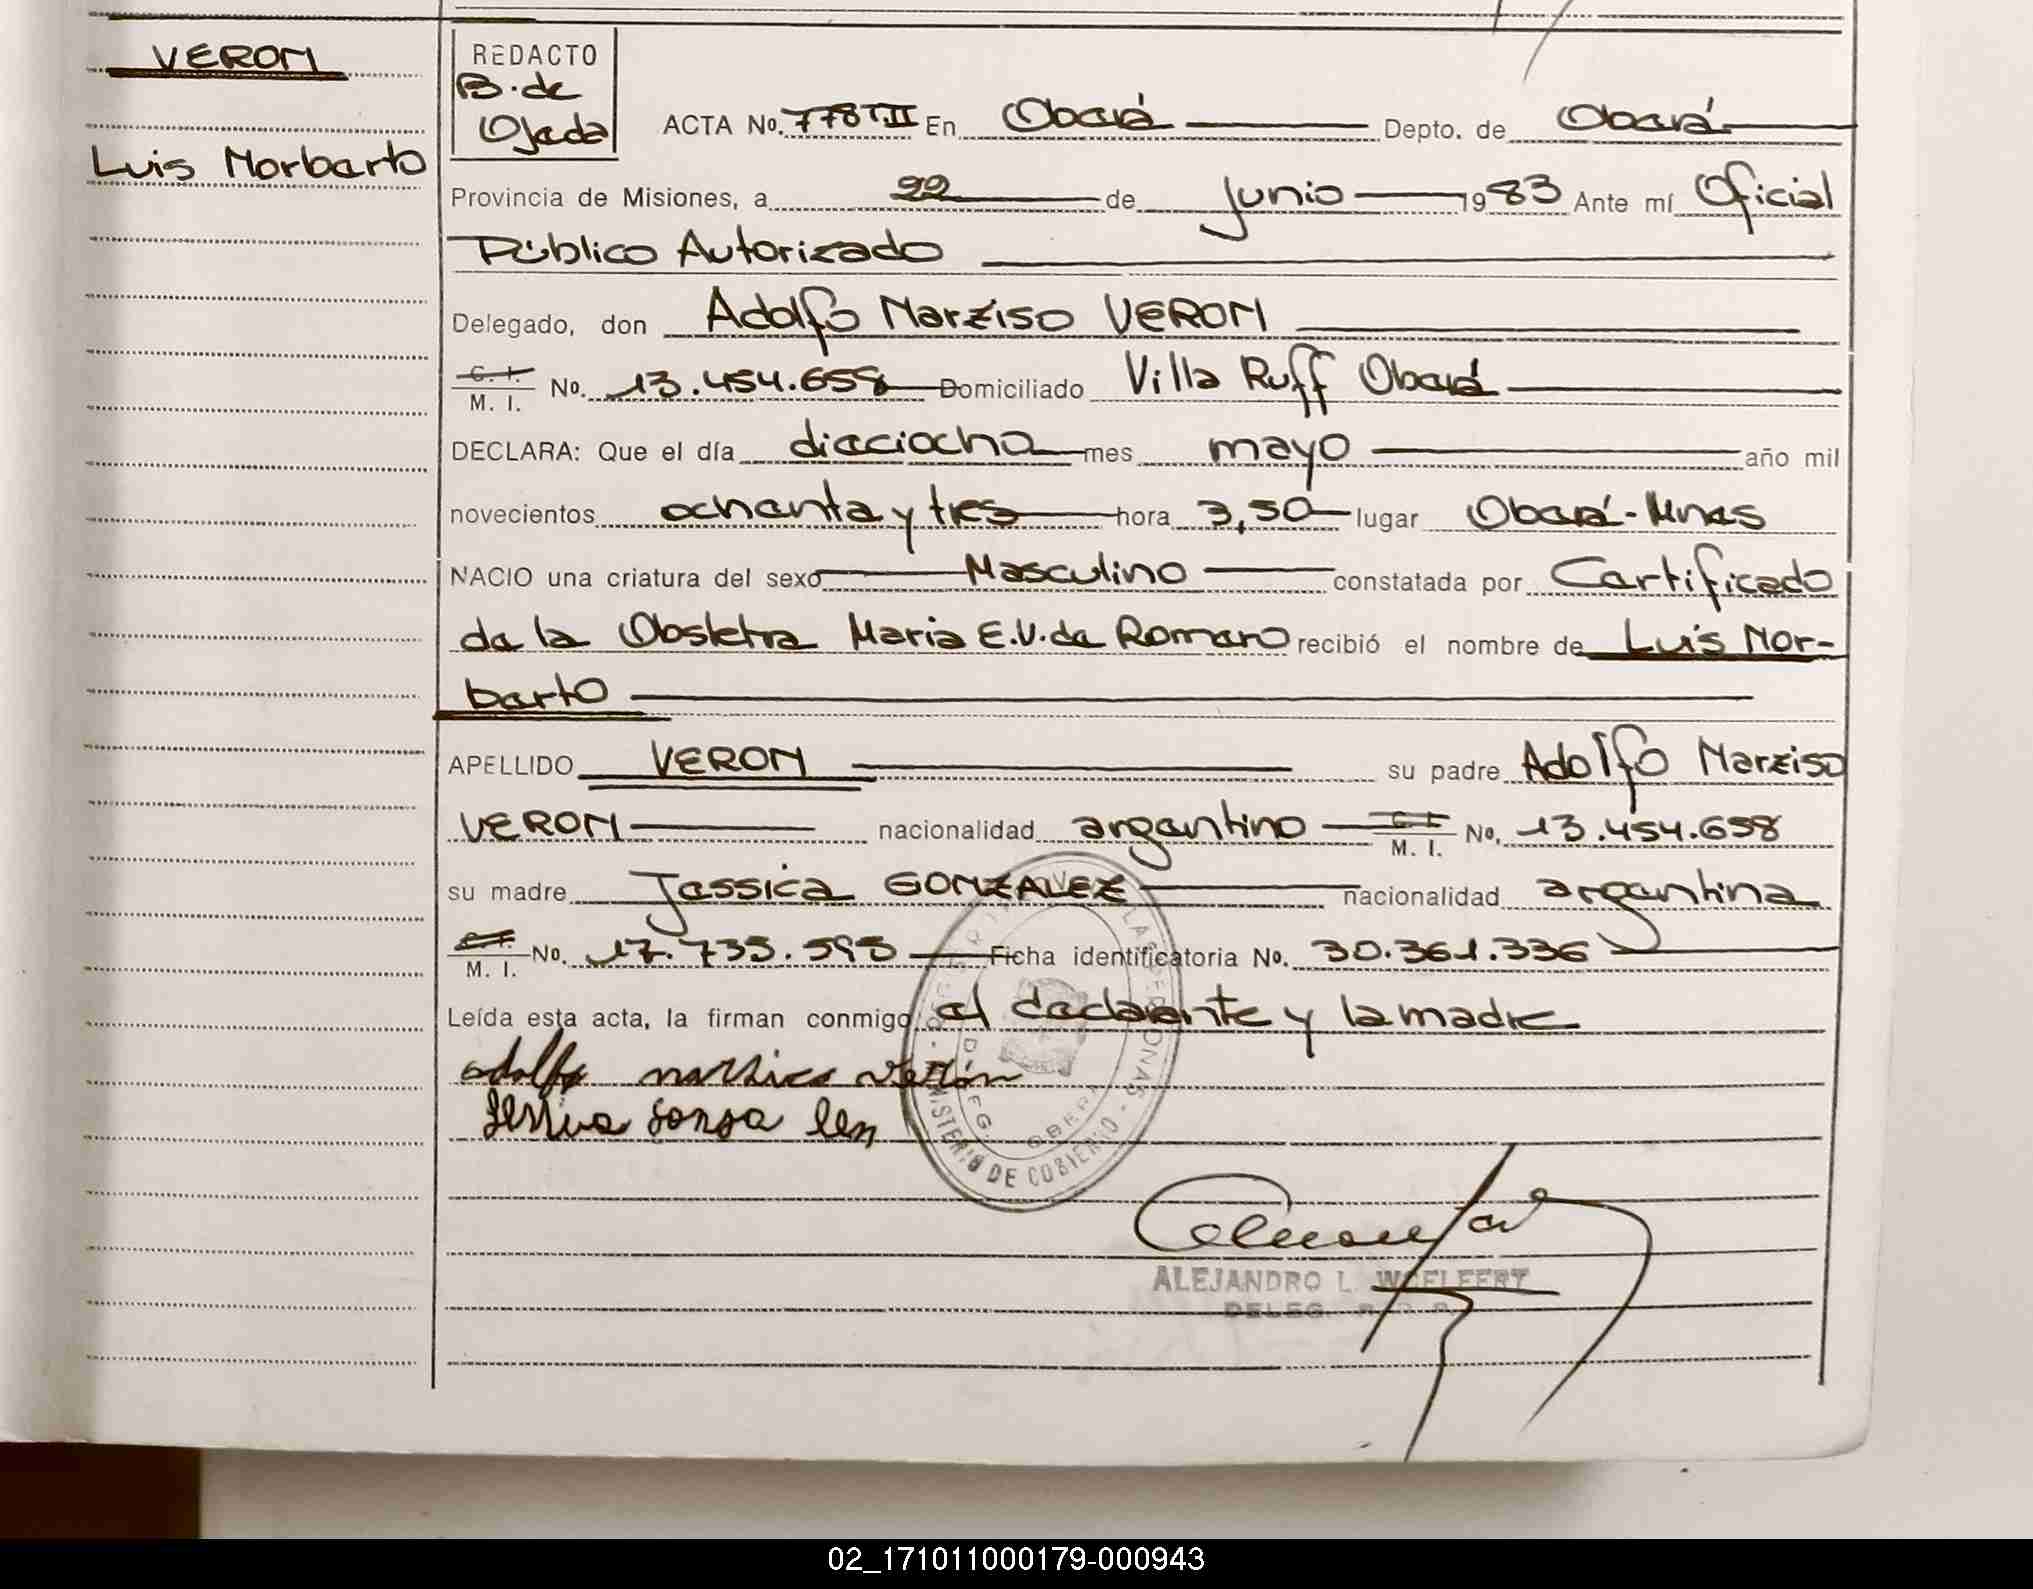 VERON
Luis Norberto
REDACTO
B. de
Ojeda
ACTA No. 778 T.II En Oberá Depto. de Oberá
Provincia de Misiones, a 22 de junio 1983 Ante mí Oficial
Público Autorizado
Delegado, don Adolfo Narziso VERON
C. I. M. I. No. 13.454.658 Domiciliado Villa Ruff Oberá
DECLARA: Que el día dieciocho mes mayo año mil
novecientos ochenta y tres hora 3,50 lugar Oberá-Mnes
NACIO una criatura del sexo Masculino constatada por Certificado
de la Obstetra Maria E.V. de Romero recibió el nombre de Luis Nor-
berto
APELLIDO VERON su padre Adolfo Narziso
VERON nacionalidad argentino C. I. M. I. No. 13.454.658
su madre Jessica GONZALEZ nacionalidad argentina
C. I. M. I. No. 17.735.595 Ficha identificatoria No. 30.361.336
Leída esta acta, la firman conmigo el declarante y la madre
Adolfo narsico verón
ALEJANDRO L. WOELFERT
DELEG.
MINISTERIO DE GOBIERNO
DELEG. OBERA
02_171011000179-000943